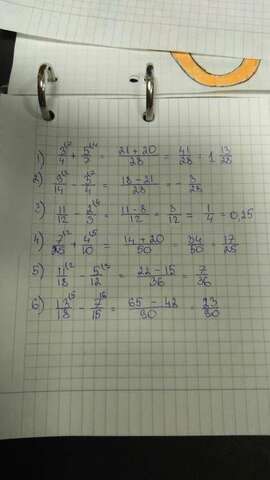 1) 3/4 + 5/7 = (21 + 20)/28 = 41/28 = 1 13/28
2) 9/14 - 3/4 = (18 - 21)/28 = - 3/28
3) 11/12 - 2/3 = (11 - 8)/12 = 3/12 = 1/4 = 0,25
4) 7/25 + 4/10 = (14 + 20)/50 = 34/50 = 17/25
5) 11/18 - 5/12 = (22 - 15)/36 = 7/36
6) 13/18 - 7/15 = (65 - 42)/90 = 23/90